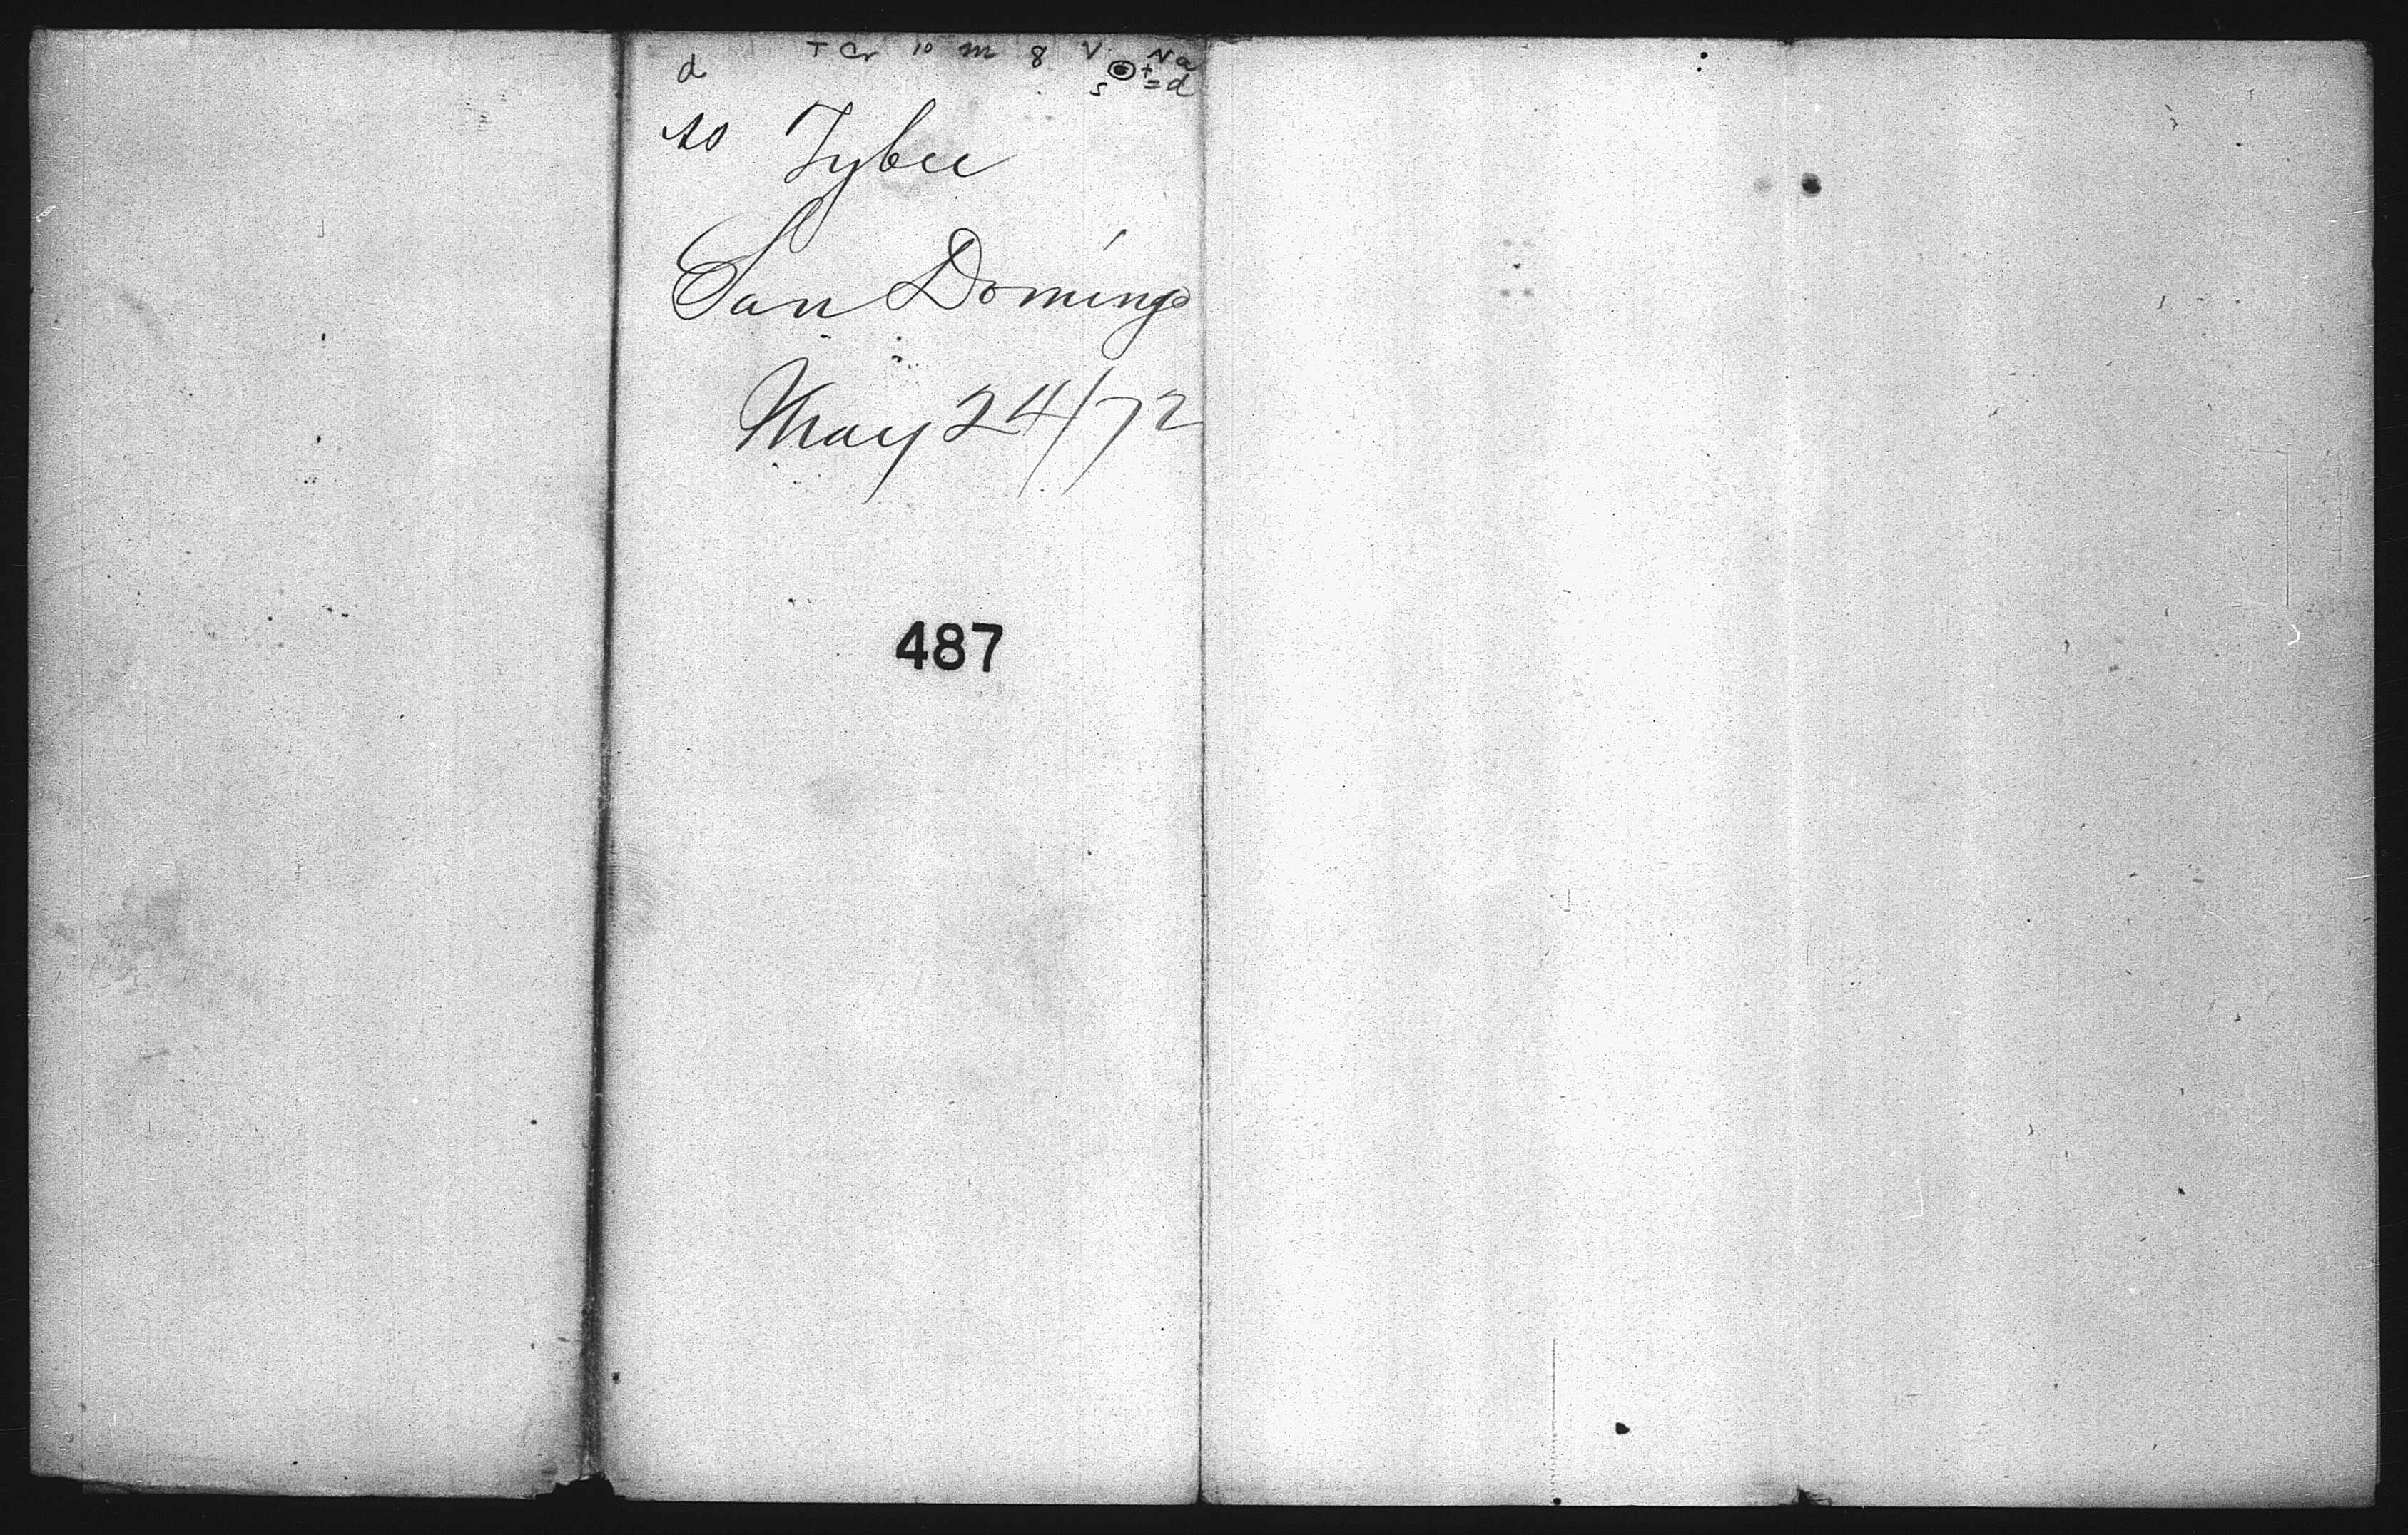 T Cr 10 m 8 V Na
d s = d
SS Tybee
San Domingo
May 24/72
487